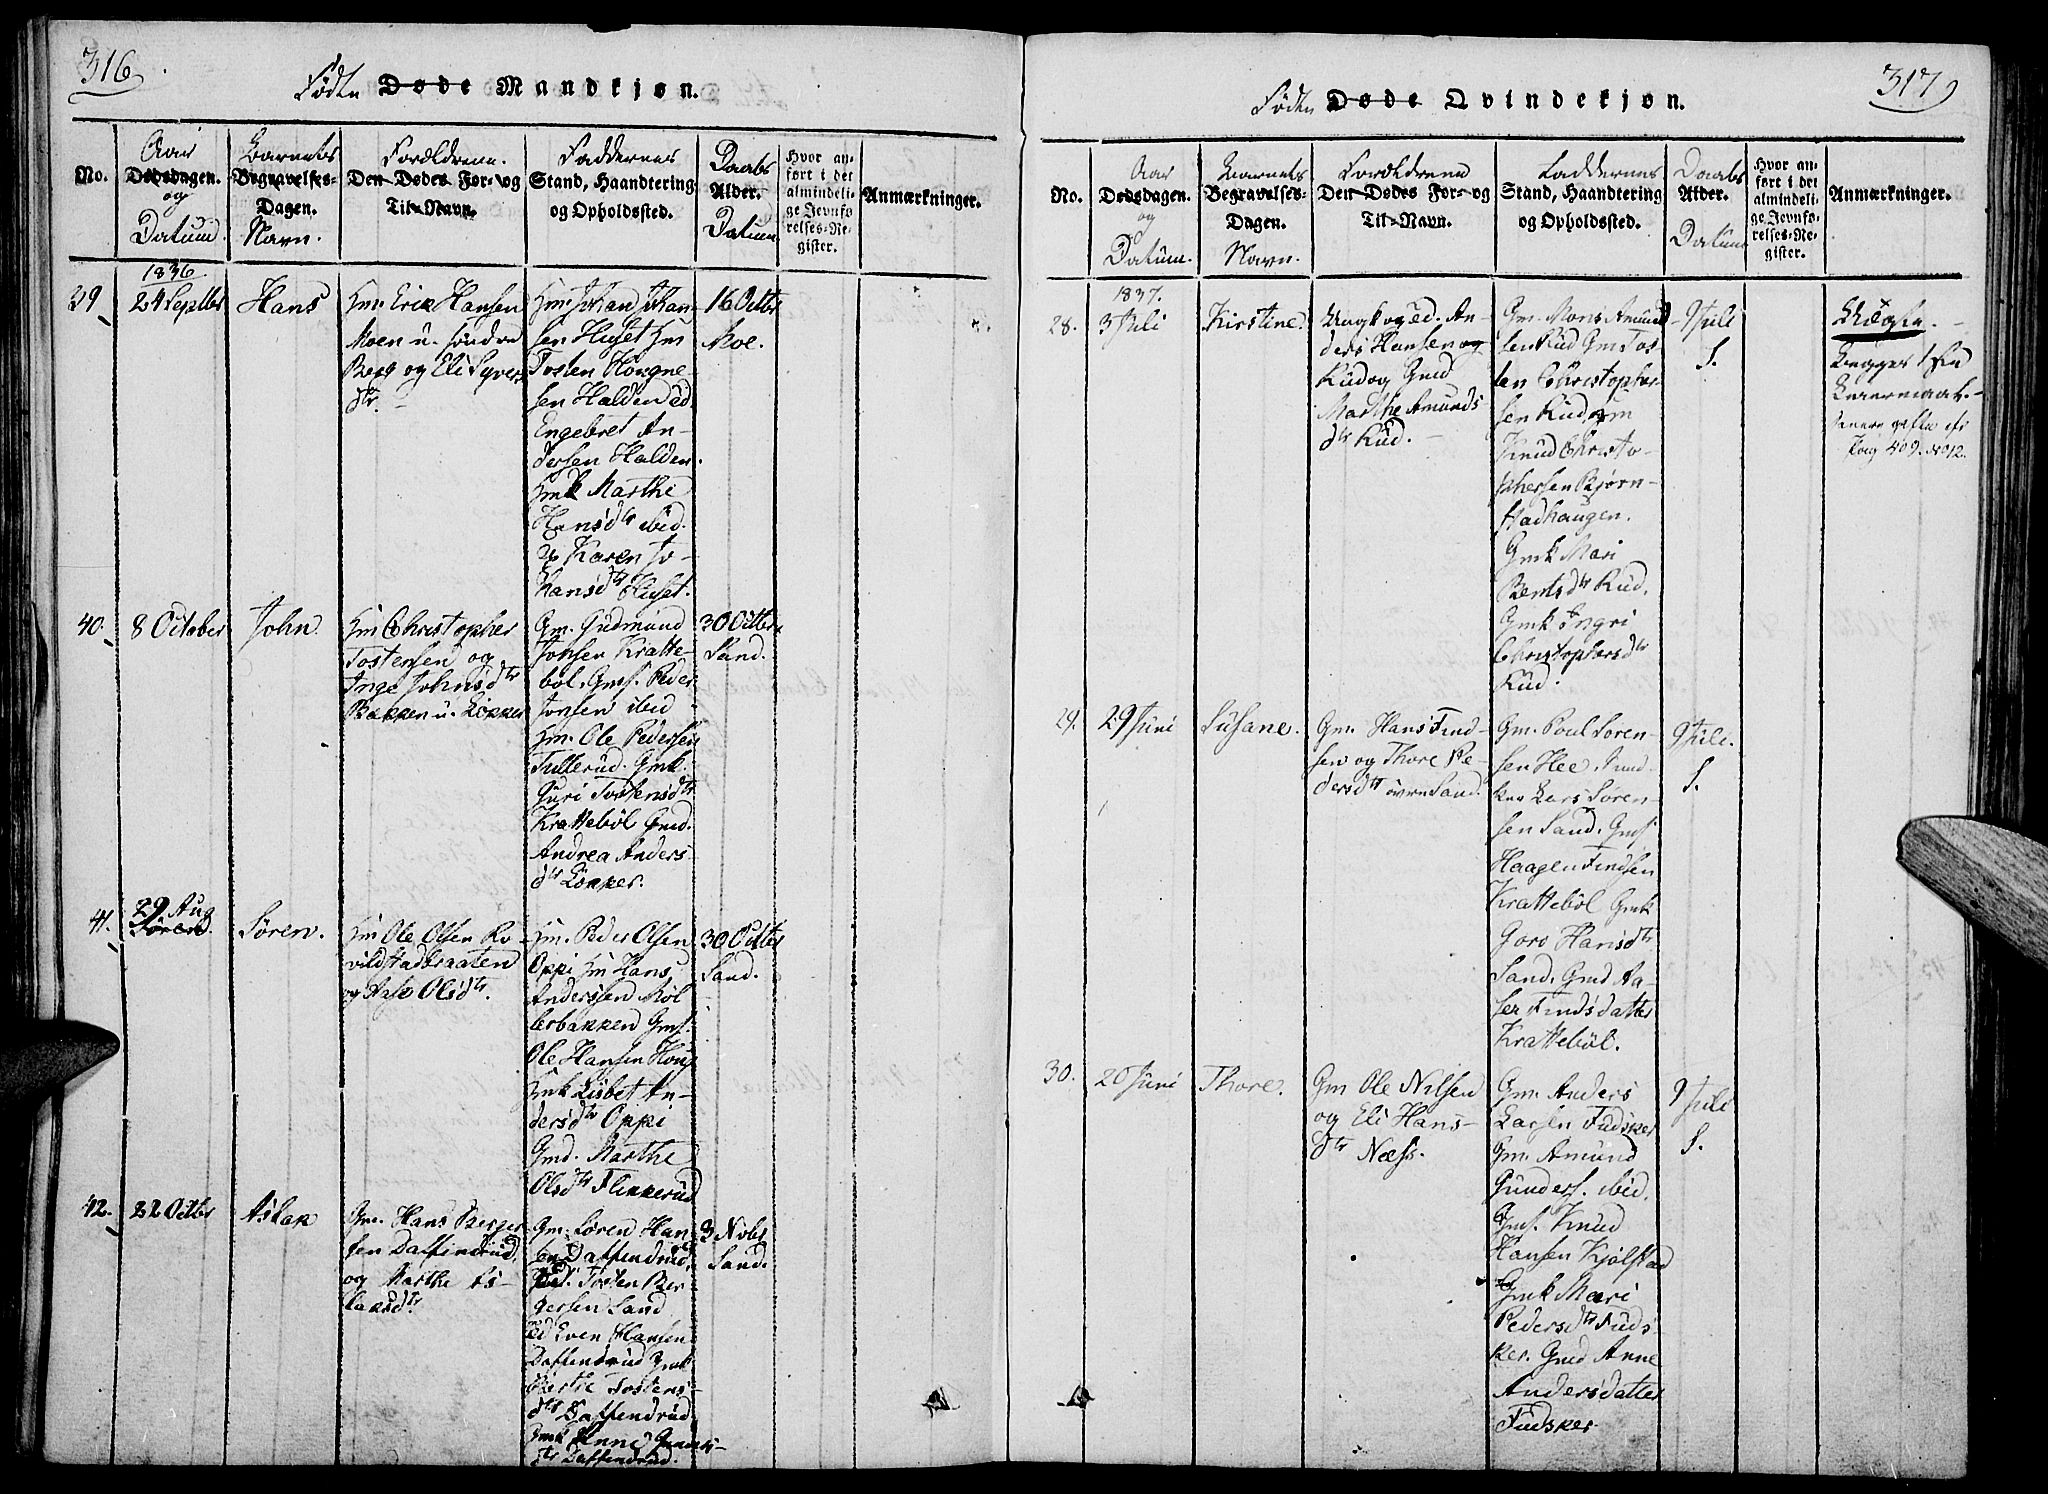 316
Fødte Døde Mandkjøn.
No.
Aar
Dødsdagen.
og
Datum.
Barnets
Begravelses-
Dagen.
Navn.
Forældrene.
Den Dødes For- og
Til-Navn.
Faddernes
Stand, Haandtering
og Opholdssted.
Daabs
Alder.
Datum
Hvor an-
ført i det
almindeli-
ge Jevnfø-
relses-Re-
gister.
Anmærkninger.
1836
39
24 Septbr
Hans
Hm. Erik Hansen
Moen u. søndre
Berg og Eli Syvers
dtr.
Hm. Johan Johan-
sen Huset Hm
Tosten Hongne-
sen Halden ed.
Engebret An-
dersen Halden.
Hmk Marthe
Hansdtr ibid.
Karen Jo-
hansdtr Huset.
16 Octbr
Moe.
40.
8 October
John
Hm Christopher
Tostensen og
Inge Johnsdtr
Bakken u. Løkker
Gm. Gudmund
Johsen Kratte-
bøl. Gms. Peder
Jonsen ibid
Hm. Ole Pedersen
Tullerud. Gmk.
Guri Tostensdtr
Krattebøl Gmd.
Andrea Anders
dtr Løkker.
30 Octbr
Sand.
41.
29 Aug
Søren
Søren.
Hm Ole Olsen Ro-
vildstadbraaten
og Aase Olsdtr.
Hm. Peder Olsen
Oppi Hm Hans
Anderssen Møl
lerbakken Gms.
Ole Hansen Houg
Hmk Lisbet An-
dersdtr Oppi
Gmd. Marthe
Olsdtr Flikkerud
30 Octbr
Sand.
42.
22 Octbr
Aslak
Gm. Hans Berger
sen Daffindrud
og Marthe As-
laksdtr.
Gm. Søren Han
sen Daffendrud.
Tosten Ber-
gersen Sand
Ed Even Hansen
Daffendrud Gmk
Berthe Tostens-
dtr Daffendrud.
Hmk Anne
dtr Daffendrud.
3 Novbr
Sand.
317
Fødte Døde Qvindekjøn.
No.
Aar
Dødsdagen.
og
Datum.
Barnets
Begravelses-
Dagen.
Navn.
Forældrene
Den Dødes For- og
Til-Navn.
Faddernes
Stand, Haandtering
og Opholdssted.
Daabs
Alder.
Datum
Hvor an-
ført i det
almindeli-
ge Jevnfø-
relses-Re-
gister.
Anmærkninger.
1837.
28.
3 Juli
Kirstine.
Ungk og ed. An-
ders Hansen og
Rud og Gmd
Marthe Amunds
dtr Rud.
Gm. Mons Amund
sen Rud Gm Tos-
ten Christopher
sen Rud
Knud Christo-
phersen Bjørn-
stadhaugen.
Gmk Mari
Berntsdtr Rud.
Gmk Ingri
Christophersdtr
Rud.
9 Juli
S.
Uægte.
Begges 1ste
Leiermaal.
senere gifte cfr
Pag 409. No 12.
29.
29 Juni
Susane.
Gm. Hans Find-
sen og Thore Pe-
dersdtr øvre Sand.
Gm. Poul Søren-
sen Hee,
Lars Søren-
sen Sand. Gms.
Haagen Findsen
Krattebøl Gmk
Goro Hansdtr
Sand. Gmd Aa-
ser Findsdatter
Krattebøl.
9 Juli.
S.
30.
20 Juni
Thore.
Gm Ole Nilsen
og Eli Hans-
dtr Næss.
Gm. Anders
Larsen Fudsker
Gm. Amund
Gunders. ibid.
Gms. Knud
Hansen Kjølstad
Gmk Mari
Pedersdtr Fuds
ker. Gmd Anne
Andersdatter
Fudsker
9 Juli
S.